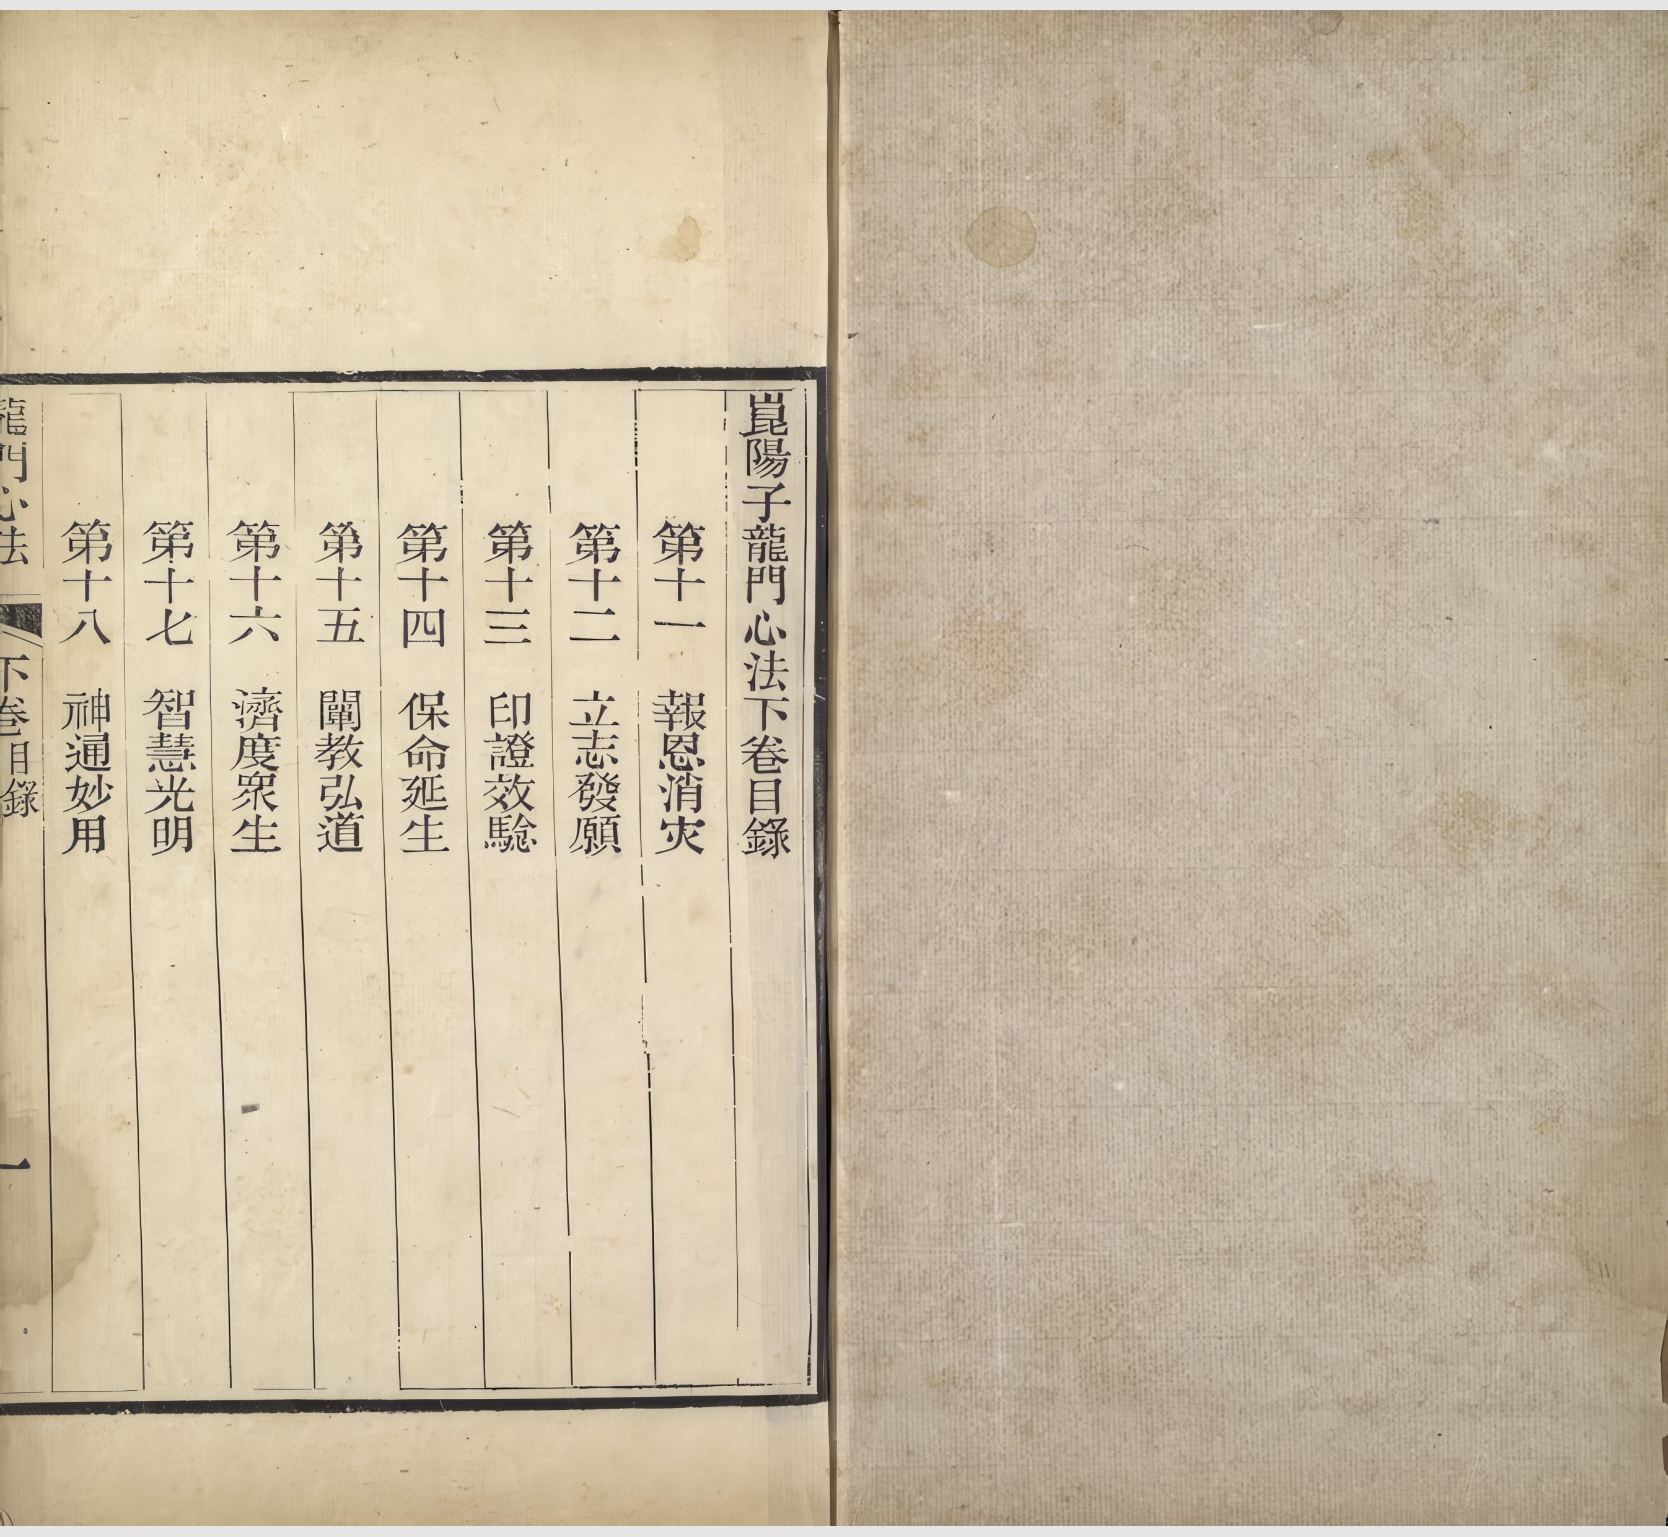 崑陽子龍門心法下卷目錄
第十一 報恩消灾
第十二 立志發願
第十三 印證效驗
第十四 保命延生
第十五 闡教弘道
第十六 濟度眾生
第十七 智慧光明
第十八 神通妙用
龍門心法 下卷目錄 一